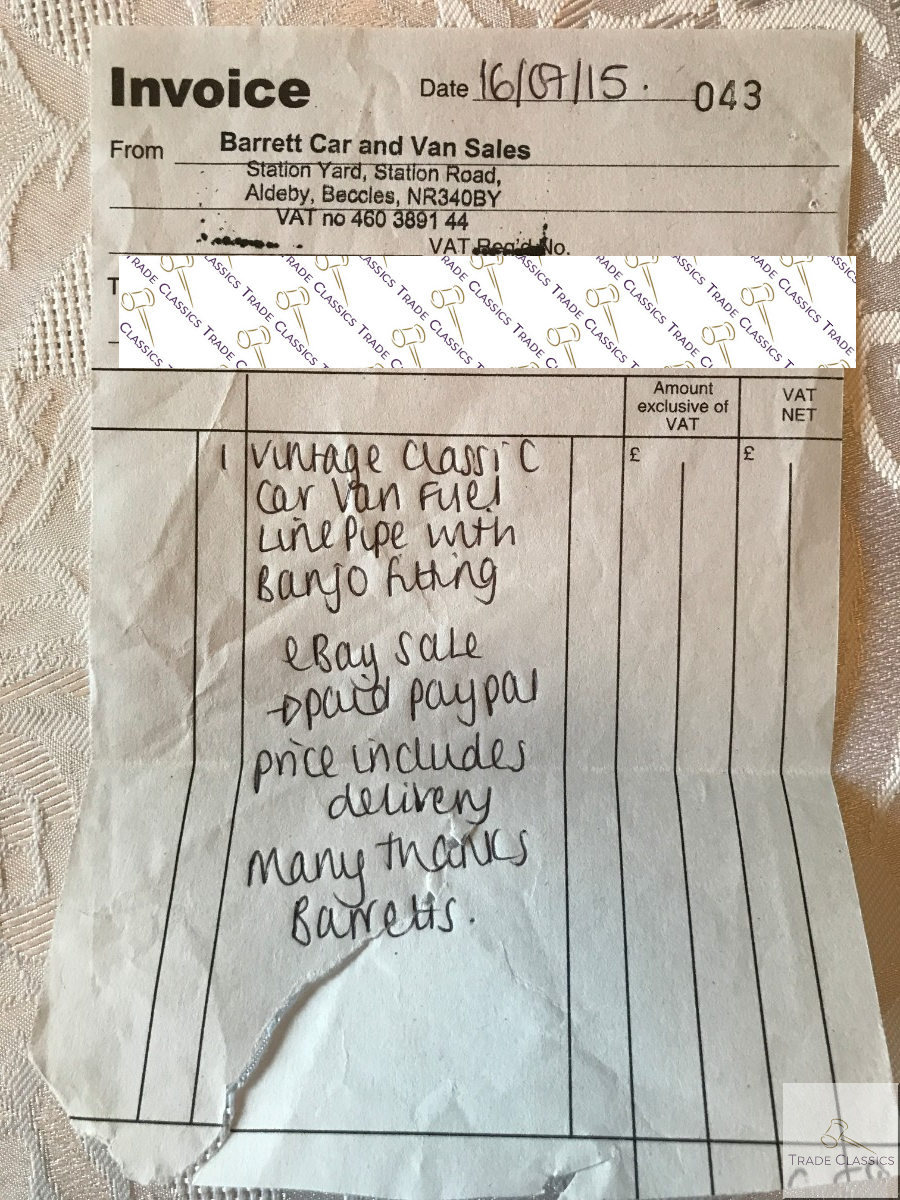 Invoice
Date 16/07/15. 043
From Barrett Car and Van Sales
Station Yard, Station Road,
Aldeby, Beccles, NR340BY
VAT no 460 3891 44
VAT Reg'd No.
TRADE CLASSICS TRADE CLASSICS TRADE CLASSICS
Amount
exclusive of
VAT
VAT
NET
£ £
1 Vintage Classic
Car Van Fuel
Line Pipe with
Banjo fitting
eBay Sale
→ paid paypal
price includes
delivery
Many thanks
Barretts.
TRADE CLASSICS